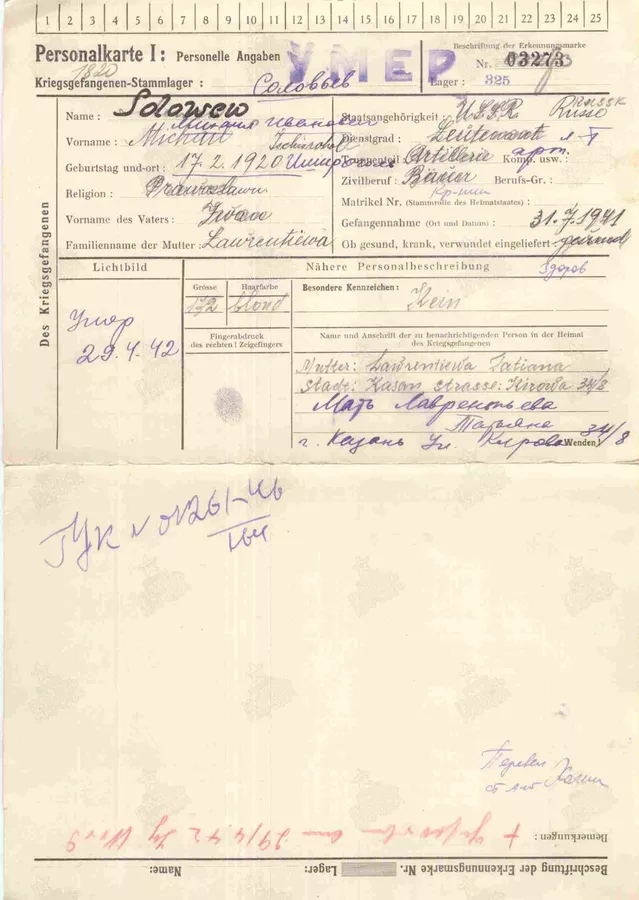 1 2 3 4 5 6 7 8 9 10 11 12 13 14 15 16 17 18 19 20 21 22 23 24 25
Personalkarte I: Personelle Angaben
УМЕР
Beschriftung der Erkennungsmarke
Nr. 03273
Kriegsgefangenen-Stammlager:
Соловьев
Lager: 325
Des Kriegsgefangenen
Name: Solowew
Михаил Иванович
Vorname: Michail
Geburtstag und-ort: 17.2.1920
Religion: Prawoslawn
Vorname des Vaters: Iwan
Familienname der Mutter: Lawrentiewa
Staatsangehörigkeit: U.S.S.R. Russe
Dienstgrad: Leutenant л-т
Truppenteil: Artillerie Komp. usw.: арт.
Zivilberuf: Bauer Berufs-Gr.:
Кр-нин
Matrikel Nr. (Stammrolle des Heimatstaates):
Gefangennahme (Ort und Datum): 31.7.1941
Ob gesund, krank, verwundet eingeliefert: gesund
Здоров
Lichtbild
Умер
29.4.42
Nähere Personalbeschreibung
Grösse
172
Haarfarbe
blond
Besondere Kennzeichen:
Kein
Fingerabdruck
des rechten! Zeigefingers
Name und Anschrift der zu benachrichtigenden Person in der Heimat
des Kriegsgefangenen
Mutter: Lawrentiewa Tatiana
Stadt: Kasan, strasse: Kirowa 34/8
Мать Лаврентьева
Татьяна
г. Казань ул. Кирова 34/8
Wenden!
Перевел
Bemerkungen:
+ 29/4.42
Beschriftung der Erkennungsmarke Nr. Lager: Name: